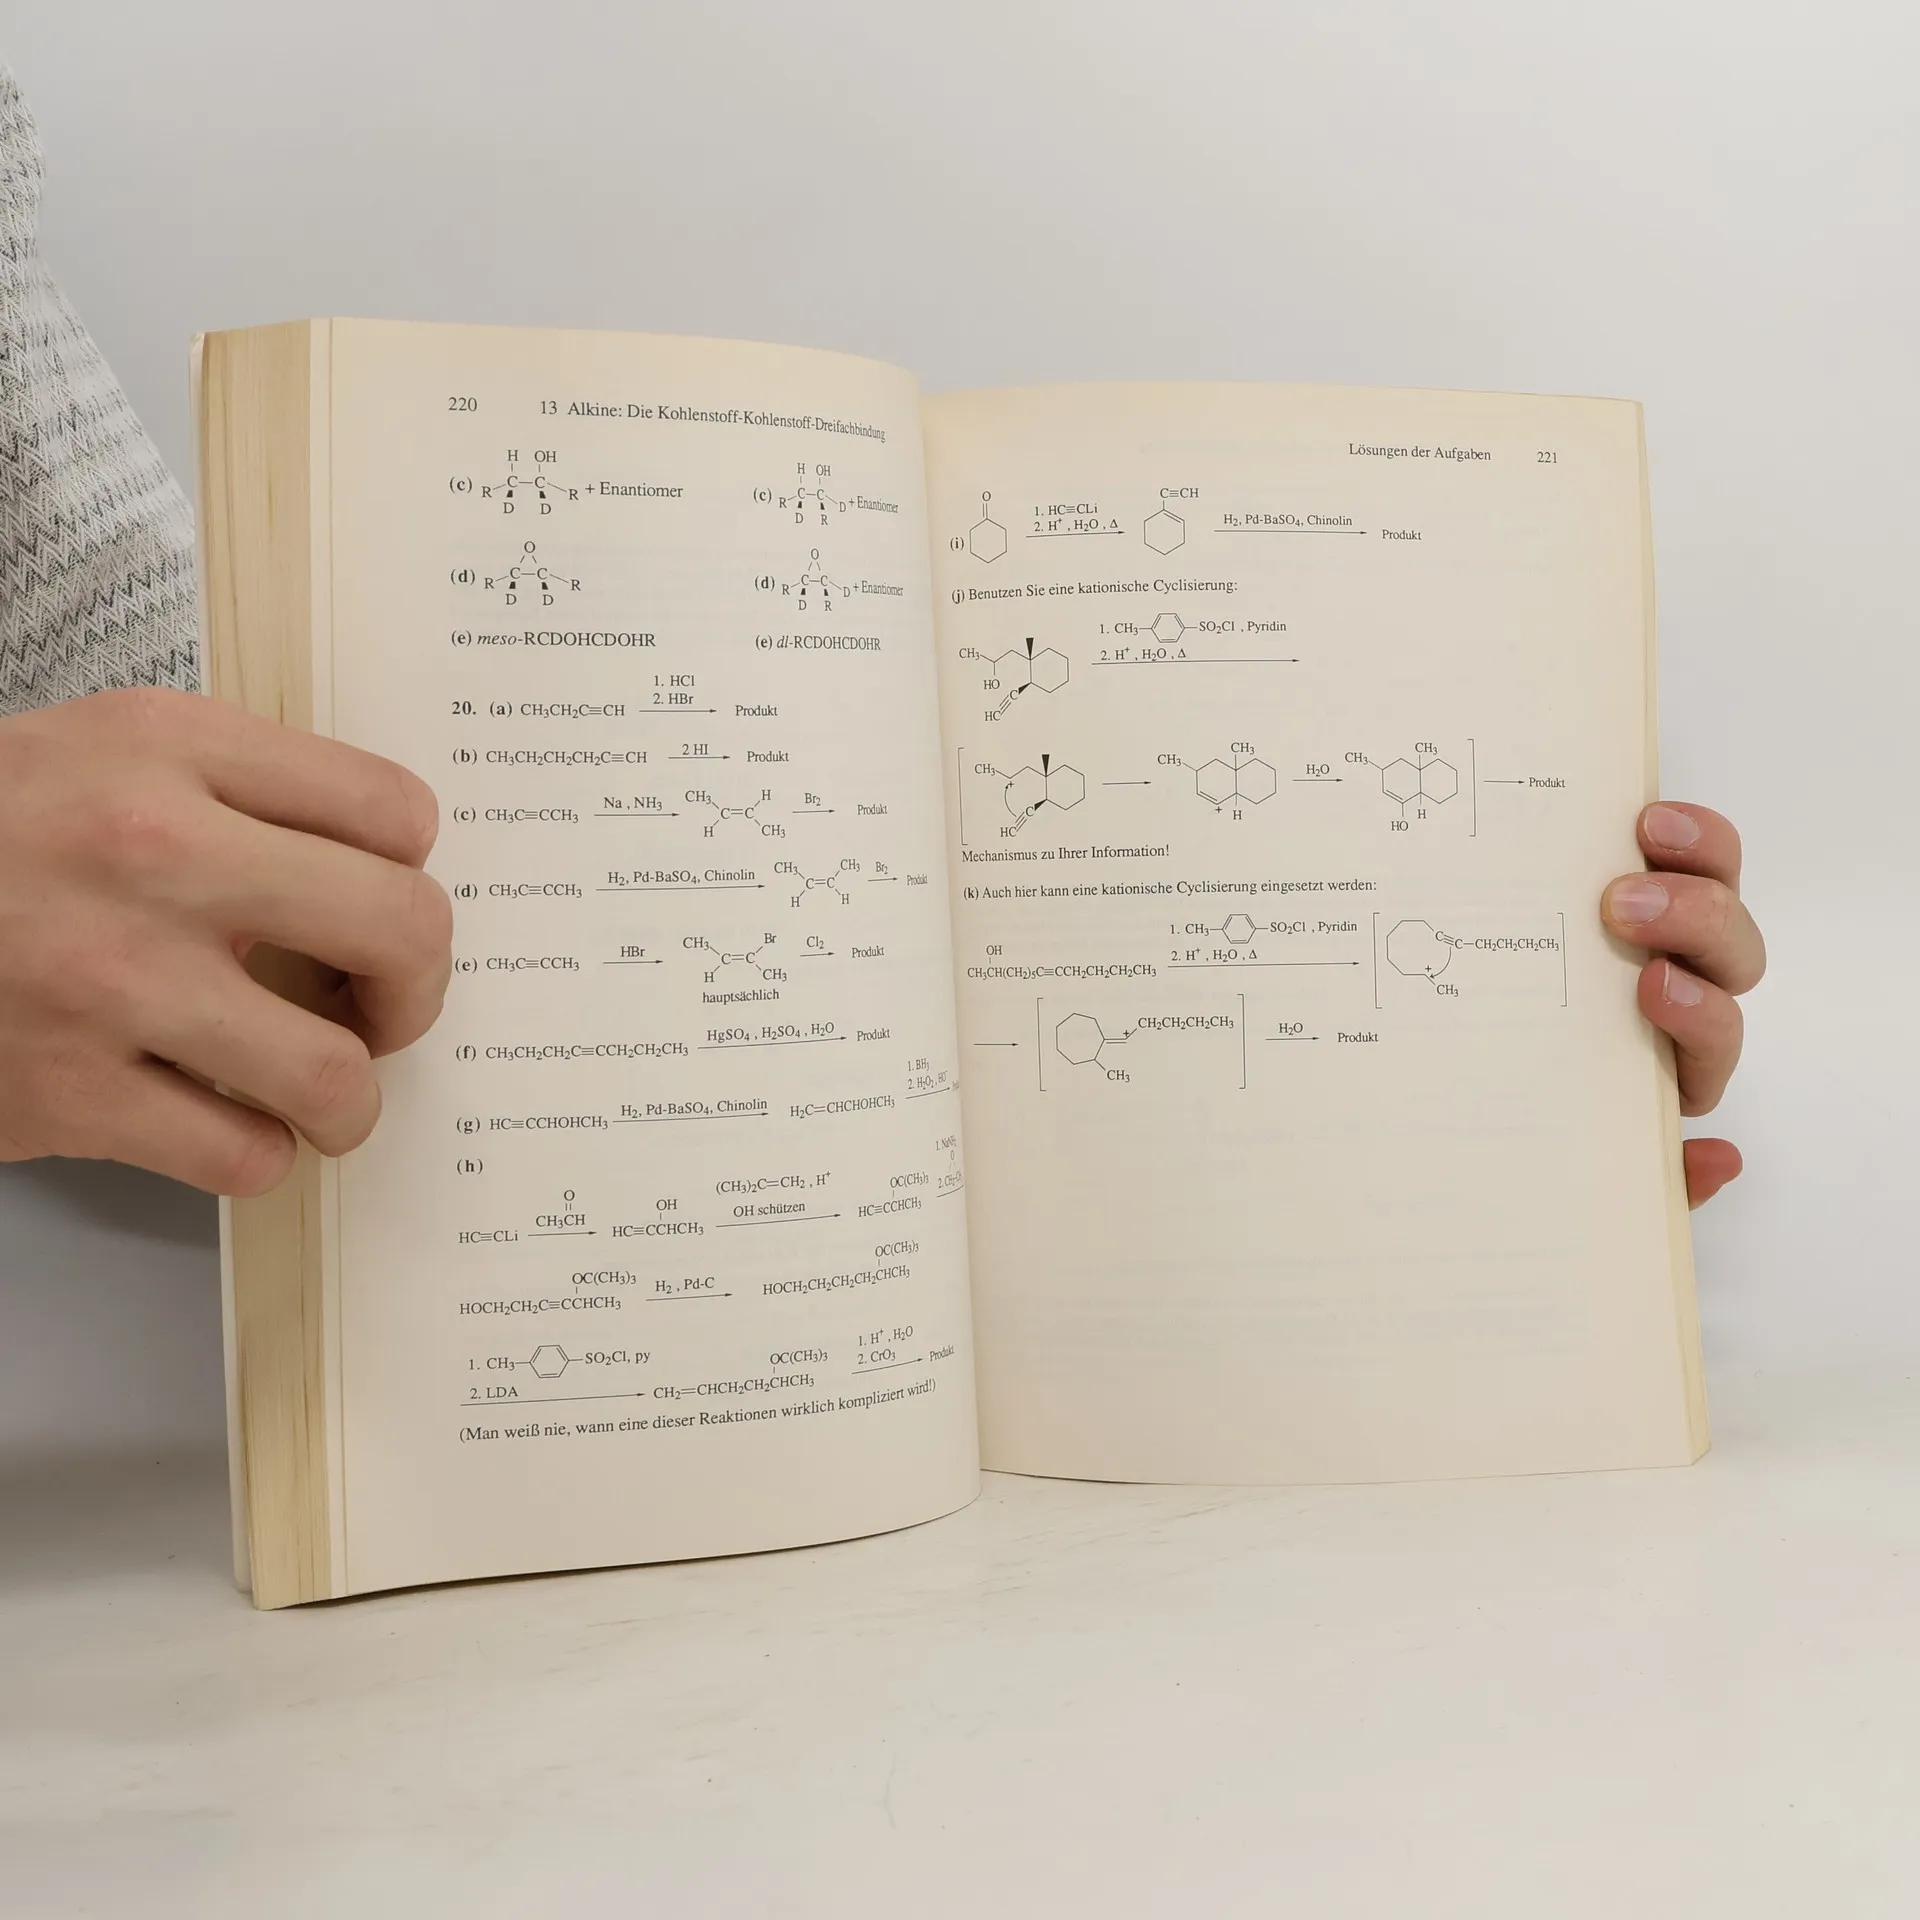 220 13 Alkine: Die Kohlenstoff-Kohlenstoff-Dreifachbindung
H OH
(c) R C–C R + Enantiomer
D D
H OH
(c) R C–C D + Enantiomer
D R
O
(d) R C–C R
D D
O
(d) R C–C D + Enantiomer
D R
(e) meso-RCDOHCDOHR (e) dl-RCDOHCDOHR
1. HCl
2. HBr
20. (a) CH₃CH₂C≡CH Produkt
(b) CH₃CH₂CH₂CH₂C≡CH 2 HI Produkt
(c) CH₃C≡CCH₃ Na , NH₃ CH₃ H C=C H CH₃ Br₂ Produkt
(d) CH₃C≡CCH₃ H₂, Pd-BaSO₄, Chinolin CH₃ CH₃ C=C H H Br₂ Produkt
(e) CH₃C≡CCH₃ HBr CH₃ Br C=C H CH₃ Cl₂ Produkt
hauptsächlich
(f) CH₃CH₂CH₂C≡CCH₂CH₂CH₃ HgSO₄ , H₂SO₄ , H₂O Produkt
1. BH₃
2. H₂O₂ , HO⁻
(g) HC≡CCHOHCH₃ H₂, Pd-BaSO₄, Chinolin H₂C=CHCHOHCH₃
(h)
O
CH₃CH
HC≡CLi
OH
HC≡CCHCH₃
(CH₃)₂C=CH₂ , H⁺
OH schützen
OC(CH₃)₃
HC≡CCHCH₃
1. NaNH₂
O
OC(CH₃)₃
HOCH₂CH₂C≡CCHCH₃
H₂ , Pd-C
OC(CH₃)₃
HOCH₂CH₂CH₂CH₂CHCH₃
1. CH₃ SO₂Cl, py
2. LDA
OC(CH₃)₃
CH₂=CHCH₂CH₂CHCH₃
1. H⁺ , H₂O
2. CrO₃
Produkt
(Man weiß nie, wann eine dieser Reaktionen wirklich kompliziert wird!)
Lösungen der Aufgaben 221
O
(i)
1. HC≡CLi
2. H⁺ , H₂O , Δ
C≡CH
H₂, Pd-BaSO₄, Chinolin
Produkt
(j) Benutzen Sie eine kationische Cyclisierung:
CH₃
HO
C
HC
1. CH₃ SO₂Cl , Pyridin
2. H⁺ , H₂O , Δ
CH₃
+
C
HC
CH₃ CH₃
+ H
H₂O
CH₃ CH₃
H
HO
Produkt
Mechanismus zu Ihrer Information!
(k) Auch hier kann eine kationische Cyclisierung eingesetzt werden:
OH
CH₃CH(CH₂)₅C≡CCH₂CH₂CH₂CH₃
1. CH₃ SO₂Cl , Pyridin
2. H⁺ , H₂O , Δ
C≡C–CH₂CH₂CH₂CH₃
+
CH₃
+ CH₂CH₂CH₂CH₃
CH₃
H₂O
Produkt